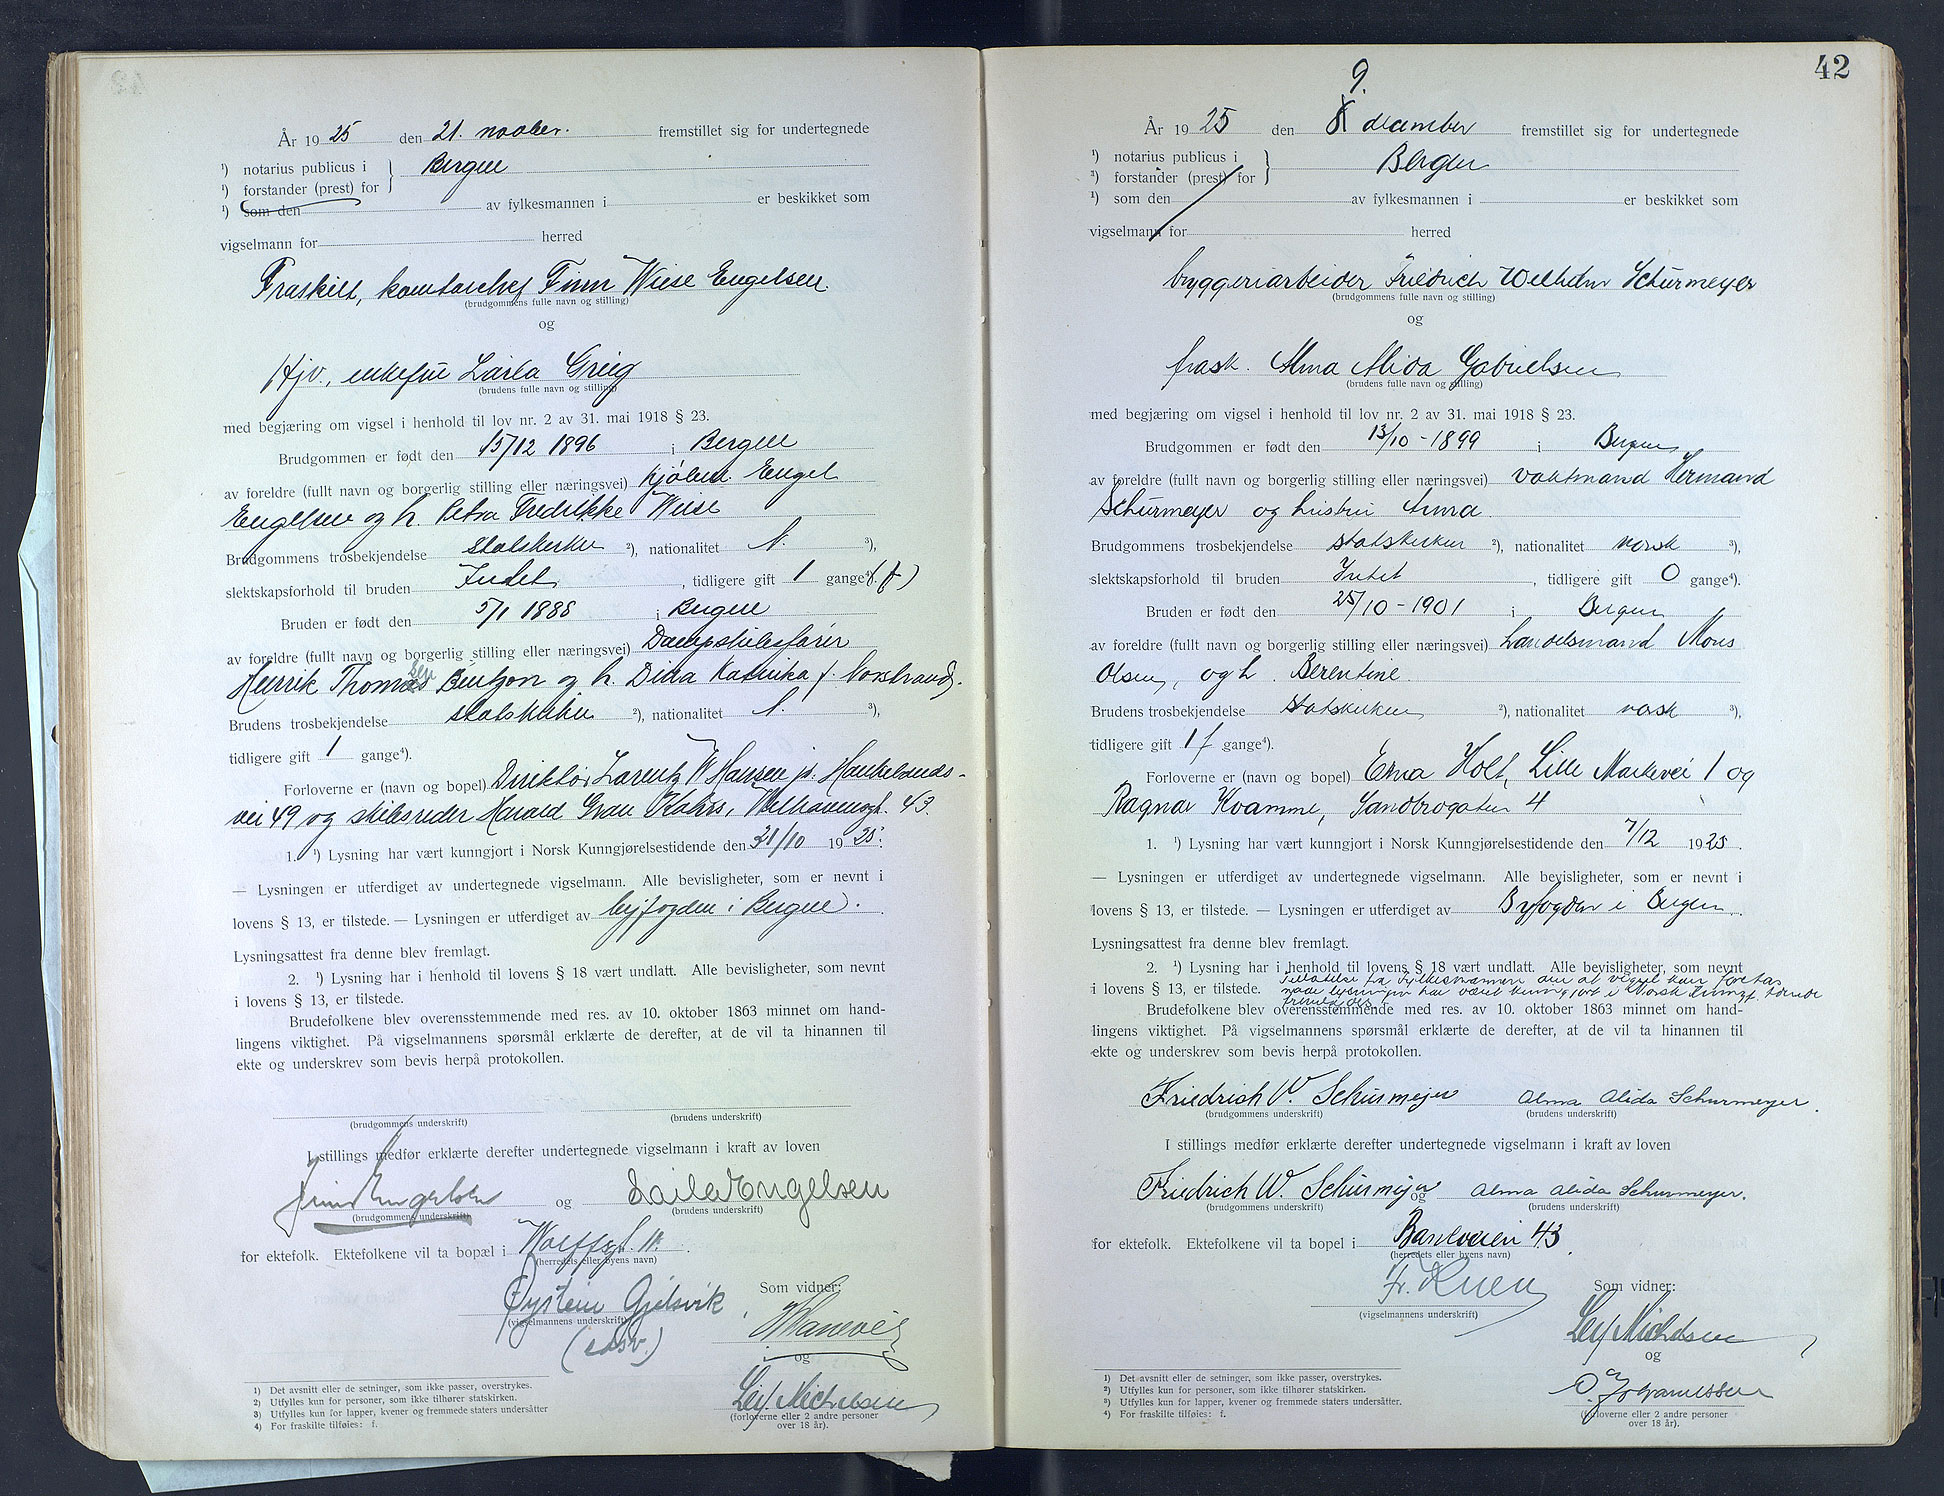 År 1925 den 21. novber. fremstillet sig for undertegnede
¹) notarius publicus i } Bergen
¹) forstander (prest) for
¹) som den av fylkesmannen i er beskikket som
vigselmann for herred
Fraskilt, kontorchef Finn Wiese Engelsen.
(brudgommens fulle navn og stilling)
og
Hjv., enkefru Laila Grieg
(brudens fulle navn og stilling)
med begjæring om vigsel i henhold til lov nr. 2 av 31. mai 1918 § 23.
Brudgommen er født den 15/12 1896 i Bergen
av foreldre (fullt navn og borgerlig stilling eller næringsvei) Kjøbmd. Engel
Engelsen og h. Petra Fredrikke Wiese
Brudgommens trosbekjendelse statskirken ²), nationalitet N. ³),
slektskapsforhold til bruden Intet, tidligere gift 1 gange⁴). (f)
Bruden er født den 5/1 1888 i Bergen
av foreldre (fullt navn og borgerlig stilling eller næringsvei) Dampskibsfører
Henrik Thomas Bentzon og h. Dida Katinka f.
Brudens trosbekjendelse statskirken ²), nationalitet N. ³),
tidligere gift 1 gange⁴).
Forloverne er (navn og bopel) Direktør Lorentz W Hansen jr. Haukelands-
vei 49 og skibsreder Harald Grau Kahrs, Welhavensgt. 43.
1. ¹) Lysning har vært kunngjort i Norsk Kunngjørelsestidende den 21/10 1925.
— Lysningen er utferdiget av undertegnede vigselmann. Alle bevisligheter, som er nevnt i
lovens § 13, er tilstede. — Lysningen er utferdiget av byfogden i Bergen.
Lysningsattest fra denne blev fremlagt.
2. ¹) Lysning har i henhold til lovens § 18 vært undlatt. Alle bevisligheter, som nevnt
i lovens § 13, er tilstede.
Brudefolkene blev overensstemmende med res. av 10. oktober 1863 minnet om hand-
lingens viktighet. På vigselmannens spørsmål erklærte de derefter, at de vil ta hinannen til
ekte og underskrev som bevis herpå protokollen.
(brudgommens underskrift) (brudens underskrift)
I stillings medfør erklærte derefter undertegnede vigselmann i kraft av loven
Finn Engelsen og Laila Engelsen
(brudgommens underskrift) (brudens underskrift)
for ektefolk. Ektefolkene vil ta bopæl i Wolffsgt. 11.
(herredets eller byens navn)
Øystein Gjelsvik Som vidner:
(vigselmannens underskrift)
(edsv.)
og
Leif Michelsen
(forloverne eller 2 andre personer
over 18 år).
¹) Det avsnitt eller de setninger, som ikke passer, overstrykes.
²) Utfylles kun for personer, som ikke tilhører statskirken.
³) Utfylles kun for lapper, kvener og fremmede staters undersåtter
⁴) For fraskilte tilføies: f.
42
9.
År 1925 den 8 december fremstillet sig for undertegnede
¹) notarius publicus i } Bergen
¹) forstander (prest) for
¹) som den av fylkesmannen i er beskikket som
vigselmann for herred
bryggeriarbeider Friedrich Wilhelm Schurmeyer
(brudgommens fulle navn og stilling)
og
frask. Alma Alida Gabrielsen
(brudens fulle navn og stilling)
med begjæring om vigsel i henhold til lov nr. 2 av 31. mai 1918 § 23.
Brudgommen er født den 13/10 - 1899 i Bergen
av foreldre (fullt navn og borgerlig stilling eller næringsvei) vaktmand Hermand
Schurmeyer og hustru Anna.
Brudgommens trosbekjendelse statskirken ²), nationalitet norsk ³),
slektskapsforhold til bruden Intet, tidligere gift 0 gange⁴).
Bruden er født den 25/10 - 1901 i Bergen
av foreldre (fullt navn og borgerlig stilling eller næringsvei) handelsmand Mons
Olsen, og h. Berentine.
Brudens trosbekjendelse statskirken ²), nationalitet norsk ³),
tidligere gift 1 f gange⁴).
Forloverne er (navn og bopel) Erna Holt, Lille Markevei 1 og
Ragnar Kvamme, Sandbrogaten 4
1. ¹) Lysning har vært kunngjort i Norsk Kunngjørelsestidende den 7/12 1925.
— Lysningen er utferdiget av undertegnede vigselmann. Alle bevisligheter, som er nevnt i
lovens § 13, er tilstede. — Lysningen er utferdiget av Byfogden i Bergen.
Lysningsattest fra denne blev fremlagt.
2. ¹) Lysning har i henhold til lovens § 18 vært undlatt. Alle bevisligheter, som nevnt
Tilladelse fra fylkesmannen om at vigsel kan foretas
i lovens § 13, er tilstede. naar lysningen har været kunngjort i Norsk Kungj. tidende
fremlagdes.
Brudefolkene blev overensstemmende med res. av 10. oktober 1863 minnet om hand-
lingens viktighet. På vigselmannens spørsmål erklærte de derefter, at de vil ta hinannen til
ekte og underskrev som bevis herpå protokollen.
Friedrich W. Schurmeyer Alma Alida Schurmeyer.
(brudgommens underskrift) (brudens underskrift)
I stillings medfør erklærte derefter undertegnede vigselmann i kraft av loven
Friedrich W. Schurmeyer og Alma Alida Schurmeyer.
(brudgommens underskrift) (brudens underskrift)
for ektefolk. Ektefolkene vil ta bopel i Baneveien 43.
(herredets eller byens navn)
Fr. Som vidner:
(vigselmannens underskrift)
Leif Michelsen
og
O. Johannessen
(forloverne eller 2 andre personer
over 18 år).
¹) Det avsnitt eller de setninger, som ikke passer, overstrykes.
²) Utfylles kun for personer, som ikke tilhører statskirken.
³) Utfylles kun for lapper, kvener og fremmede staters undersåtter.
⁴) For fraskilte tilføies: f.